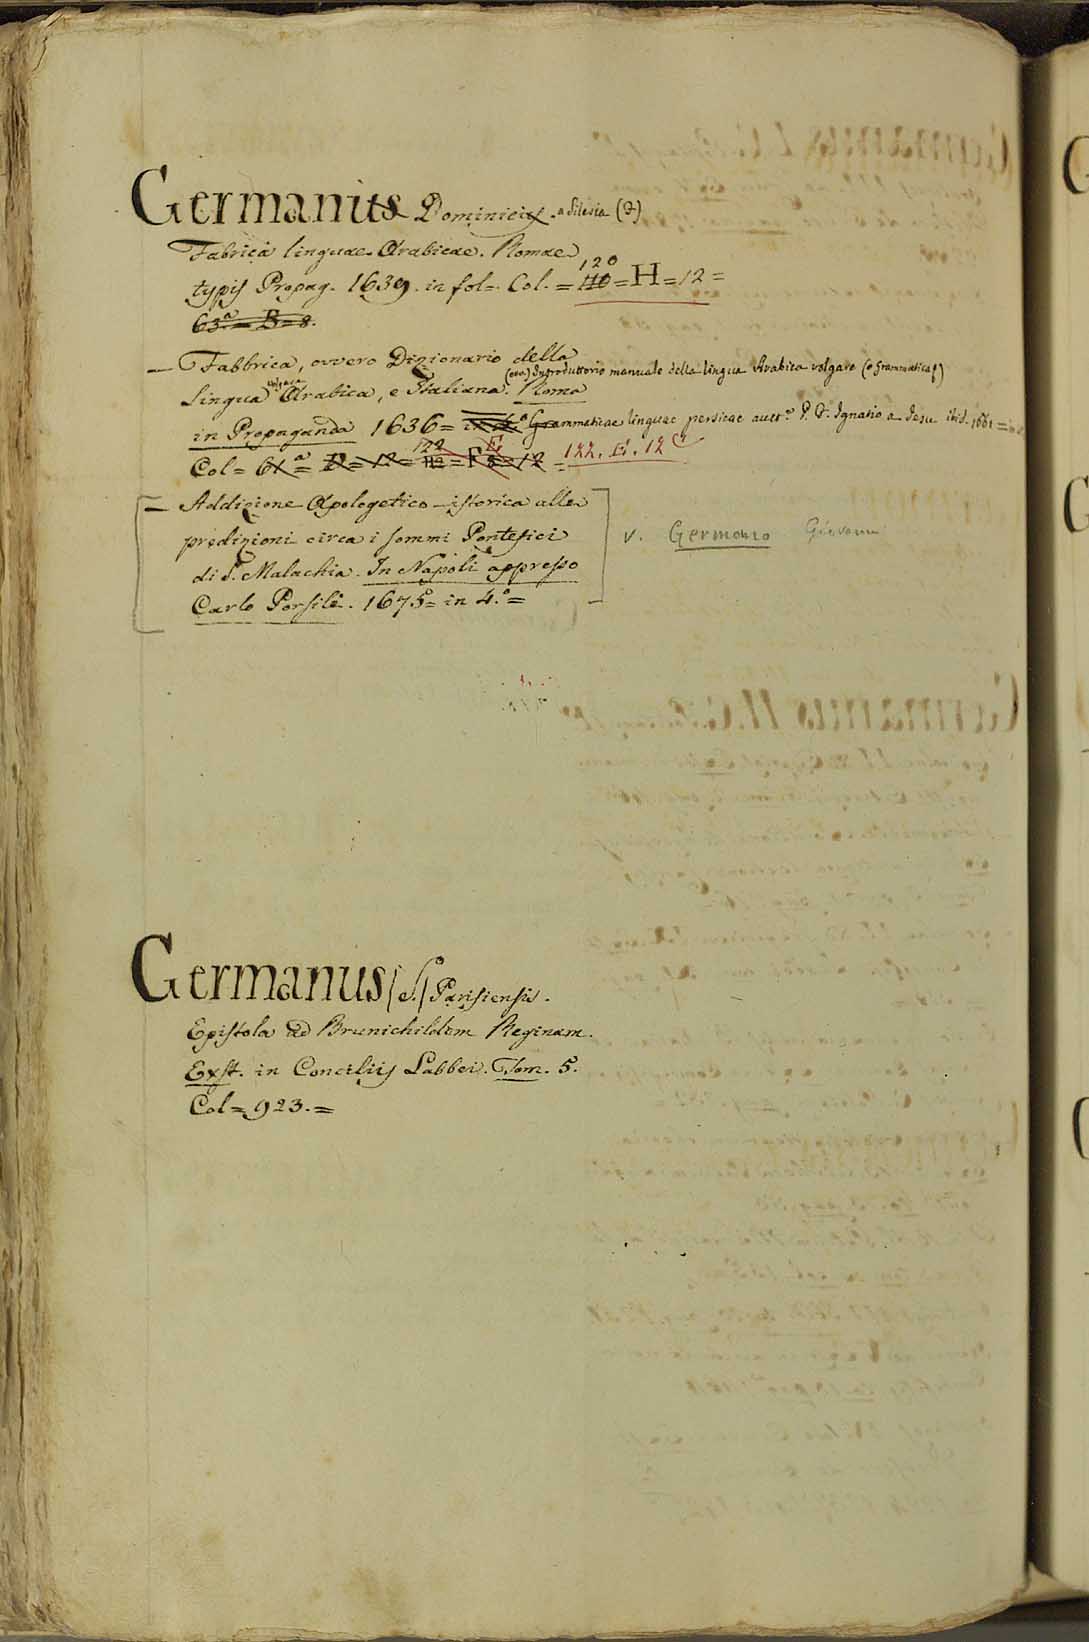 Germanus Dominicus a Silesia (P)
Fabrica linguae Arabicae. Romae
typis Propag. 1639. in fol= Col. = 110 120 = H = 12 =
63.ª = B = 8.
— Fabbrica, ovvero Dizionario della
(ovv.) Introduttorio manuale della lingua Arabica volgare (o Grammatica)
lingua volgare Arabica, e Italiana. Roma
in Propaganda 1636 = in 4.º Grammaticae linguae persicae auct.e P. F. Ignatio a Jesu ibid. 1661 =
Col = 61ª = = 12 = 122 = F = 12 = 122. E. 12
= Addizione Apologetico-istorica alle
predizioni circa i sommi Pontefici
di S. Malachia. In Napoli appresso
Carlo Porsile. 1675= in 4.º=
v. Germano Giovanni
Germanus (S.) Parisiensis.
Epistola ad Brunichildem Reginam.
Exst. in Conciliis Labbei. Tom. 5.
Col = 923. =